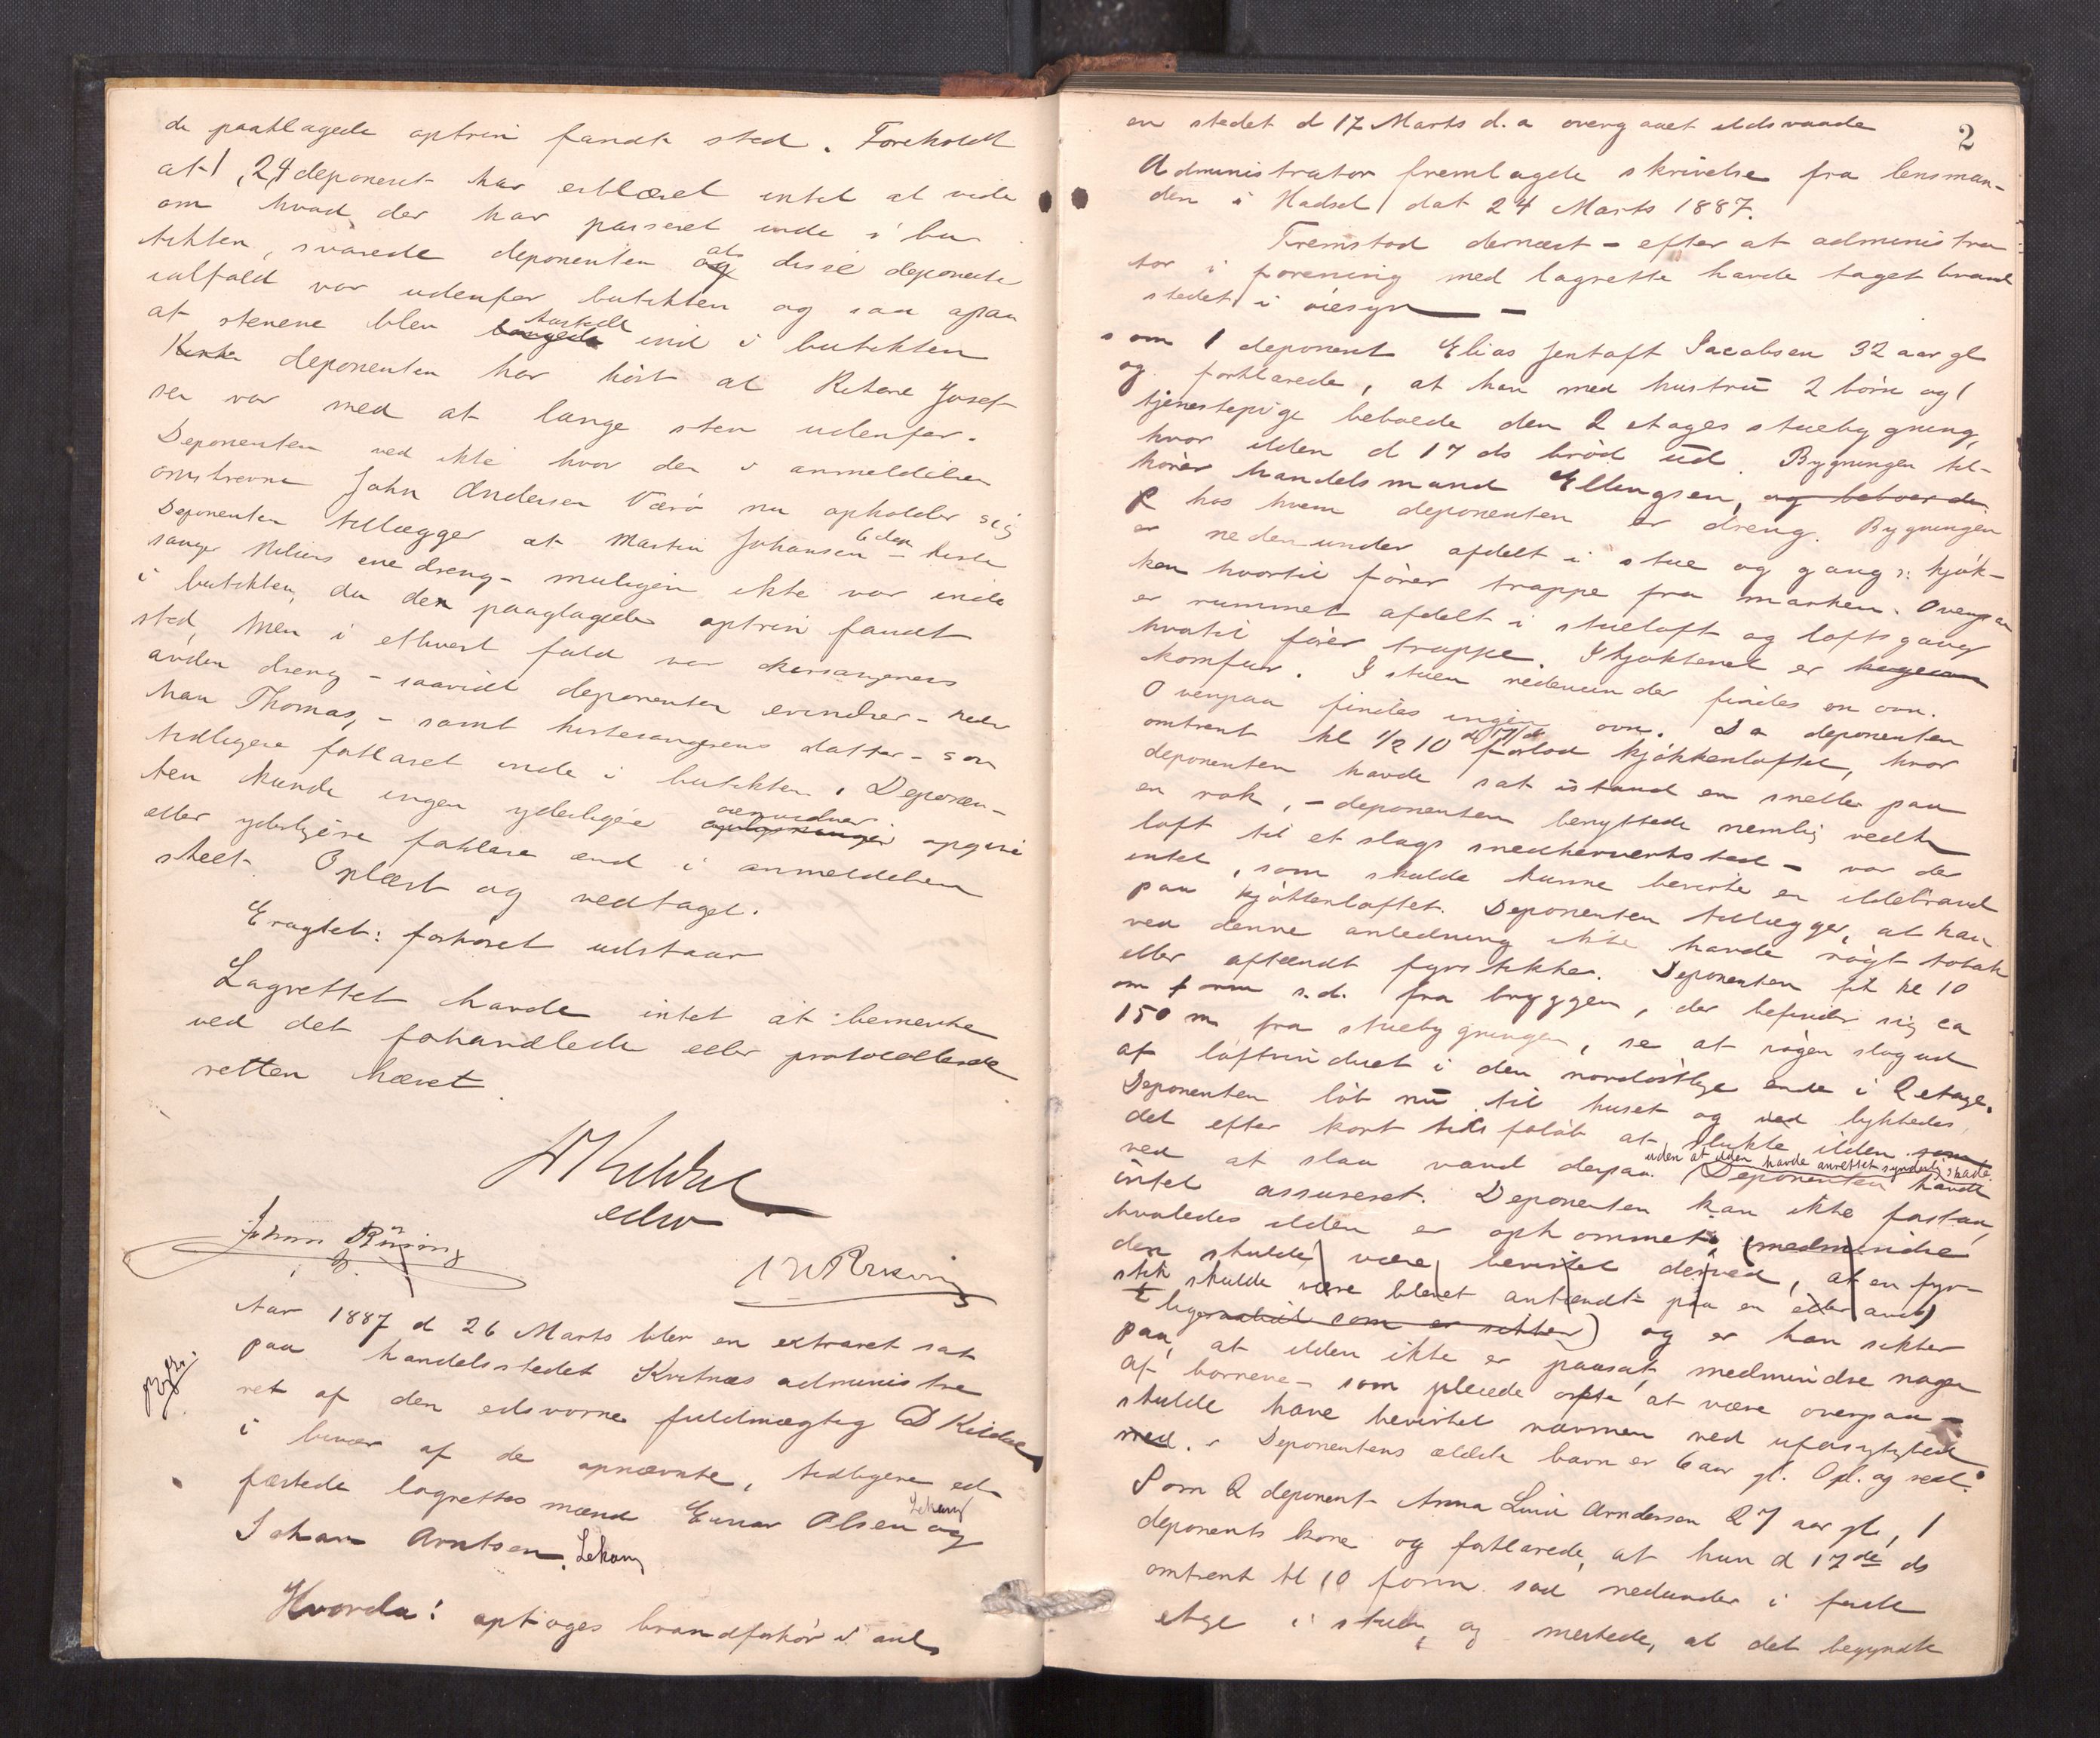 de paaklagede optrin fandt sted. Foreholdt
at 1, 2, 4 deponent har erklæret intet at vide
om hvad der har passeret inde i bu
tikken, svarede deponenten at disse deponenter
ialfald var udenfor butikken og saa ogsaa
at stenene blev kastede ind i butikken
deponenten har hört at Rikard Josef
sen var med at lange sten udenfor.
Deponenten ved ikke hvor den i anmeldelsen
omskrevne John Andersen Værö nu opholder sig
Deponenten tillægger at Martin Johansen
sanger Nilsens ene dreng - muligen ikke var inde
i butikken, da den paaklagede optrin fandt
sted, men i ethvert fald var kirkesangerens
anden dreng - saavidt deponenten erindrer - heder
han Thomas, - samt kirkesangerens datter - som
tidligere forklaret inde i butikken. Deponen-
ten kunde ingen yderligere opgive
eller yderligere forklare end i anmeldelsen
skeet. Oplæst og vedtaget.
Eragtet: forhöret udstaar
Lagrettet havde intet at bemerke
ved det forhandlede eller protocollerede
retten hævet
D Kildal
edsv
Johan Rüsing
Aar 1887 d 26 Marts blev en extraret sat
paa handelsstedet Kvitnæs administre
ret af den edsvorne fuldmægtig D Kildal
i bivær af de opnævnte, tidligere ed-
fæstede lagrettesmænd Einar Olsen Lekang og
Johan Arntsen Lekang
Hvorda: optoges brandforhör i anl
2
en stedet d 17 Marts d.a overgaaet ildsvaade
Administrator fremlagde skrivelse fra lensman-
den i Hadsel dat 24 Marts 1887.
Fremstod dernæst - efter at administra
tor i forening med lagrette havde taget brand
stedet i öiesyn -
som 1 deponent Elias Jentoft Jacobsen 32 aar gl
og forklarede, at han med hustru 2 börn og 1
tjenestepige beboede den 2 etages stuebygning,
hvor ilden d 17 ds bröd ud. Bygningen til-
hörer handelsmand Ellingsen, og beboer den
hos hvem deponenten er dreng. Bygningen
er nedenunder afdelt i stue og gang s: kjök-
ken hvortil förer trappe fra marken. Ovenpaa
er rummet afdelt i stueloft og loftsgang
hvortil förer trappe. I kjökkenet er
komfur. I stuen nedenunder findes en ovn.
Ovenpaa findes ingen ovn. Da deponenten
omtrent kl 1/2 10 d 17/ds forlod kjökkenloftet, hvor
deponenten havde sat istand en snelle paa
en rok, - deponenten benyttede nemlig vedk
loft til et slags snedkerverksted - var der
intet, som skulde kunne bevirke en ildebrand
paa kjökkenloftet. Deponenten tillægger, at han
ved denne anledning ikke havde rögt tobak
eller aftændt fyrstikker. Deponenten fik kl 10
om form s.d. fra bryggen, der befinder sig ca
150 m fra stuebygningen, se at rögen slog ud
af loftvinduet i den nordöstlige ende i 2 etage.
Deponenten löb nu til huset og lykkedes
det efter kort tids forlöb at slukke ilden som
ved at slaa vand derpaa uden at ilden havde anrettet synderlig skade. Deponenten havde
intet assureret. Deponenten kan ikke forstaa,
hvorledes ilden er opkommet (medmindre
den skulde være bevirket derved, at en fyr-
stik skulde være blevet antændt paa en eller and)
som er sikker) og er han sikker
paa, at ilden ikke er paasat, medmindre nogen
af börnene - som pleiede ofte at være ovenpaa -
skulde have bevirket varmen ved uforsigtighed
med. Deponentens ældste barn er 6 aar gl. Opl. og vedt.
Som 2 deponent Anna Arndersen 27 aar gl, 1
deponents kone og forklarede, at hun d 17de ds
omtrent kl 10 form. sad nedunder i förste
etage i stuen, og merkede, at det begyndte